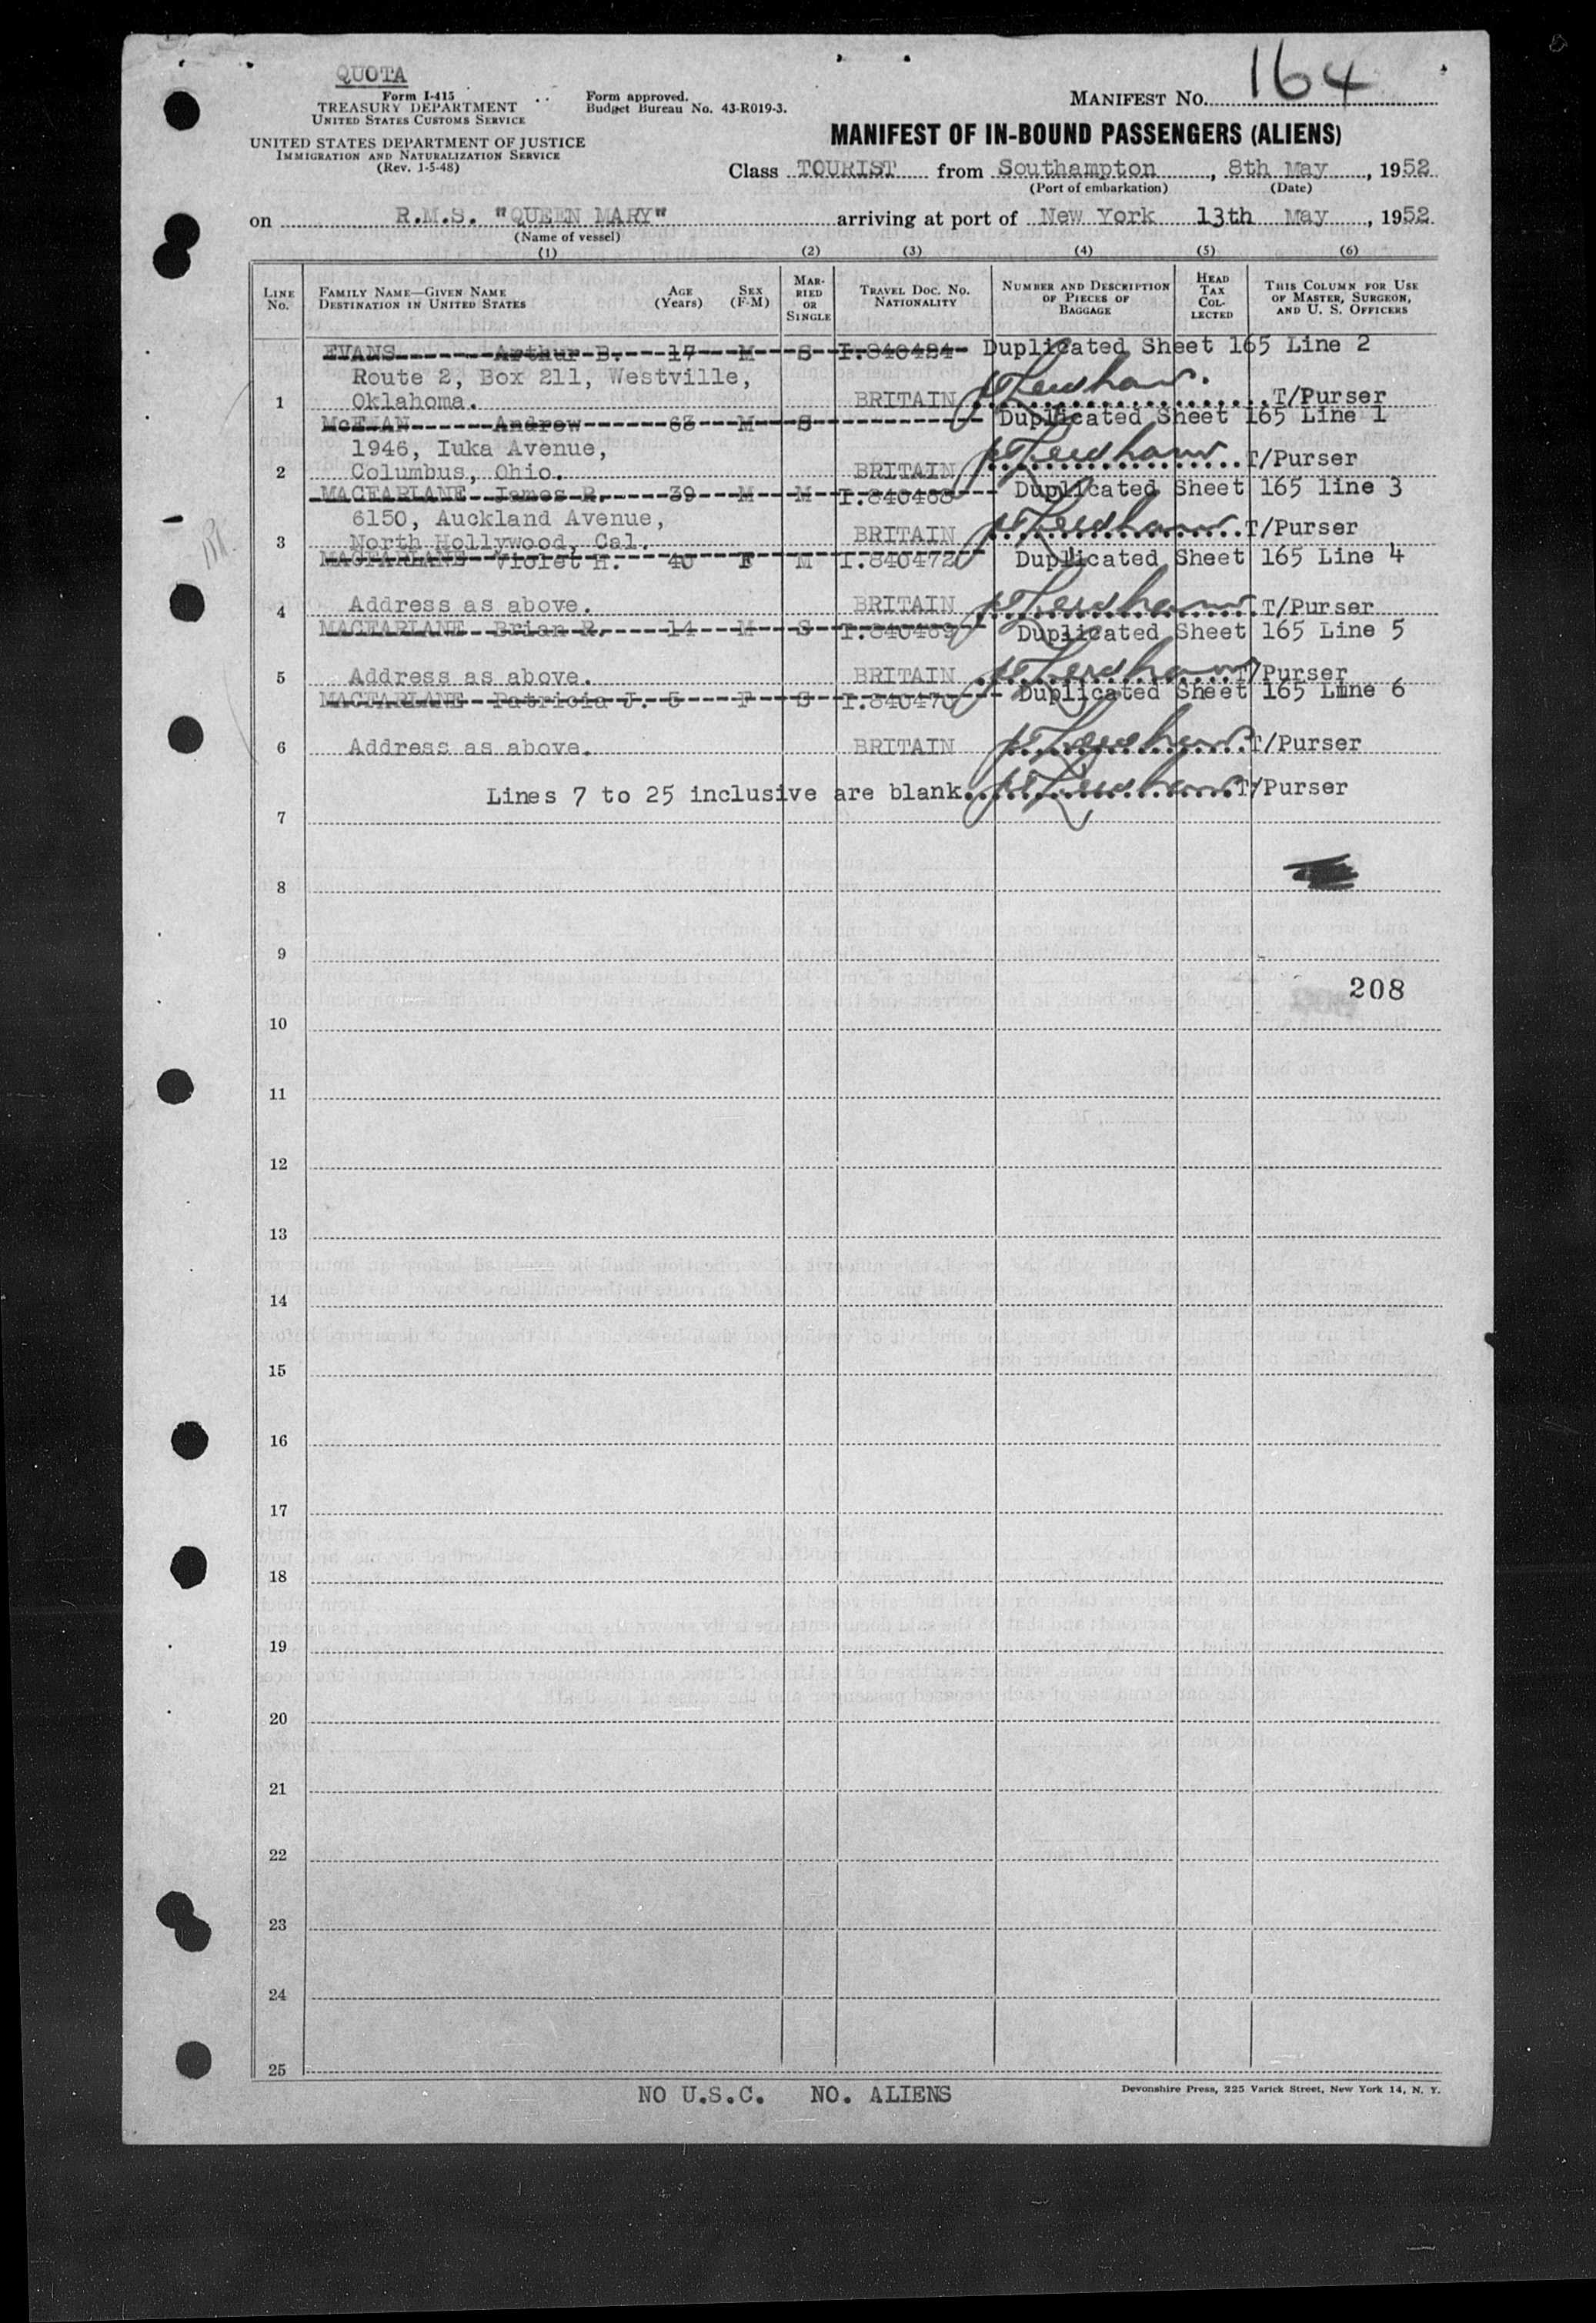 QUOTA
Form I-415
TREASURY DEPARTMENT
UNITED STATES CUSTOMS SERVICE
UNITED STATES DEPARTMENT OF JUSTICE
IMMIGRATION AND NATURALIZATION SERVICE
(Rev. 1-5-48)
Form approved.
Budget Bureau No. 43-R019-3.
MANIFEST NO. 164
MANIFEST OF IN-BOUND PASSENGERS (ALIENS)
Class TOURIST from Southampton, 8th May, 1952
(Port of embarkation) (Date)
on R.M.S. "QUEEN MARY" arriving at port of New York 13th May, 1952
(Name of vessel)
(1) (2) (3) (4) (5) (6)
LINE NO.
FAMILY NAME—GIVEN NAME
DESTINATION IN UNITED STATES
AGE (Years)
SEX (F-M)
MARRIED OR SINGLE
TRAVEL DOC. NO. NATIONALITY
NUMBER AND DESCRIPTION OF PIECES OF BAGGAGE
HEAD TAX COLLECTED
THIS COLUMN FOR USE OF MASTER, SURGEON, AND U. S. OFFICERS
EVANS Arthur B. 17 M S I.840484 Duplicated Sheet 165 Line 2
Route 2, Box 211, Westville,
1 Oklahoma. BRITAIN T/Purser
McEWAN Andrew 63 M S Duplicated Sheet 165 Line 1
1946, Iuka Avenue,
2 Columbus, Ohio. BRITAIN T/Purser
MACFARLANE James R. 39 M M I.840468 Duplicated Sheet 165 line 3
6150, Auckland Avenue,
3 North Hollywood, Cal. BRITAIN T/Purser
MACFARLANE Violet H. 40 F M I.840472 Duplicated Sheet 165 Line 4
4 Address as above. BRITAIN T/Purser
MACFARLANE Brian R. 14 M S I.840469 Duplicated Sheet 165 Line 5
5 Address as above. BRITAIN T/Purser
MACFARLANE Patricia J. 5 F S I.840470 Duplicated Sheet 165 Line 6
6 Address as above. BRITAIN T/Purser
Lines 7 to 25 inclusive are blank. T/Purser
7
8
9
208
10
11
12
13
14
15
16
17
18
19
20
21
22
23
24
25
NO U.S.C. NO. ALIENS
Devonshire Press, 225 Varick Street, New York 14, N. Y.